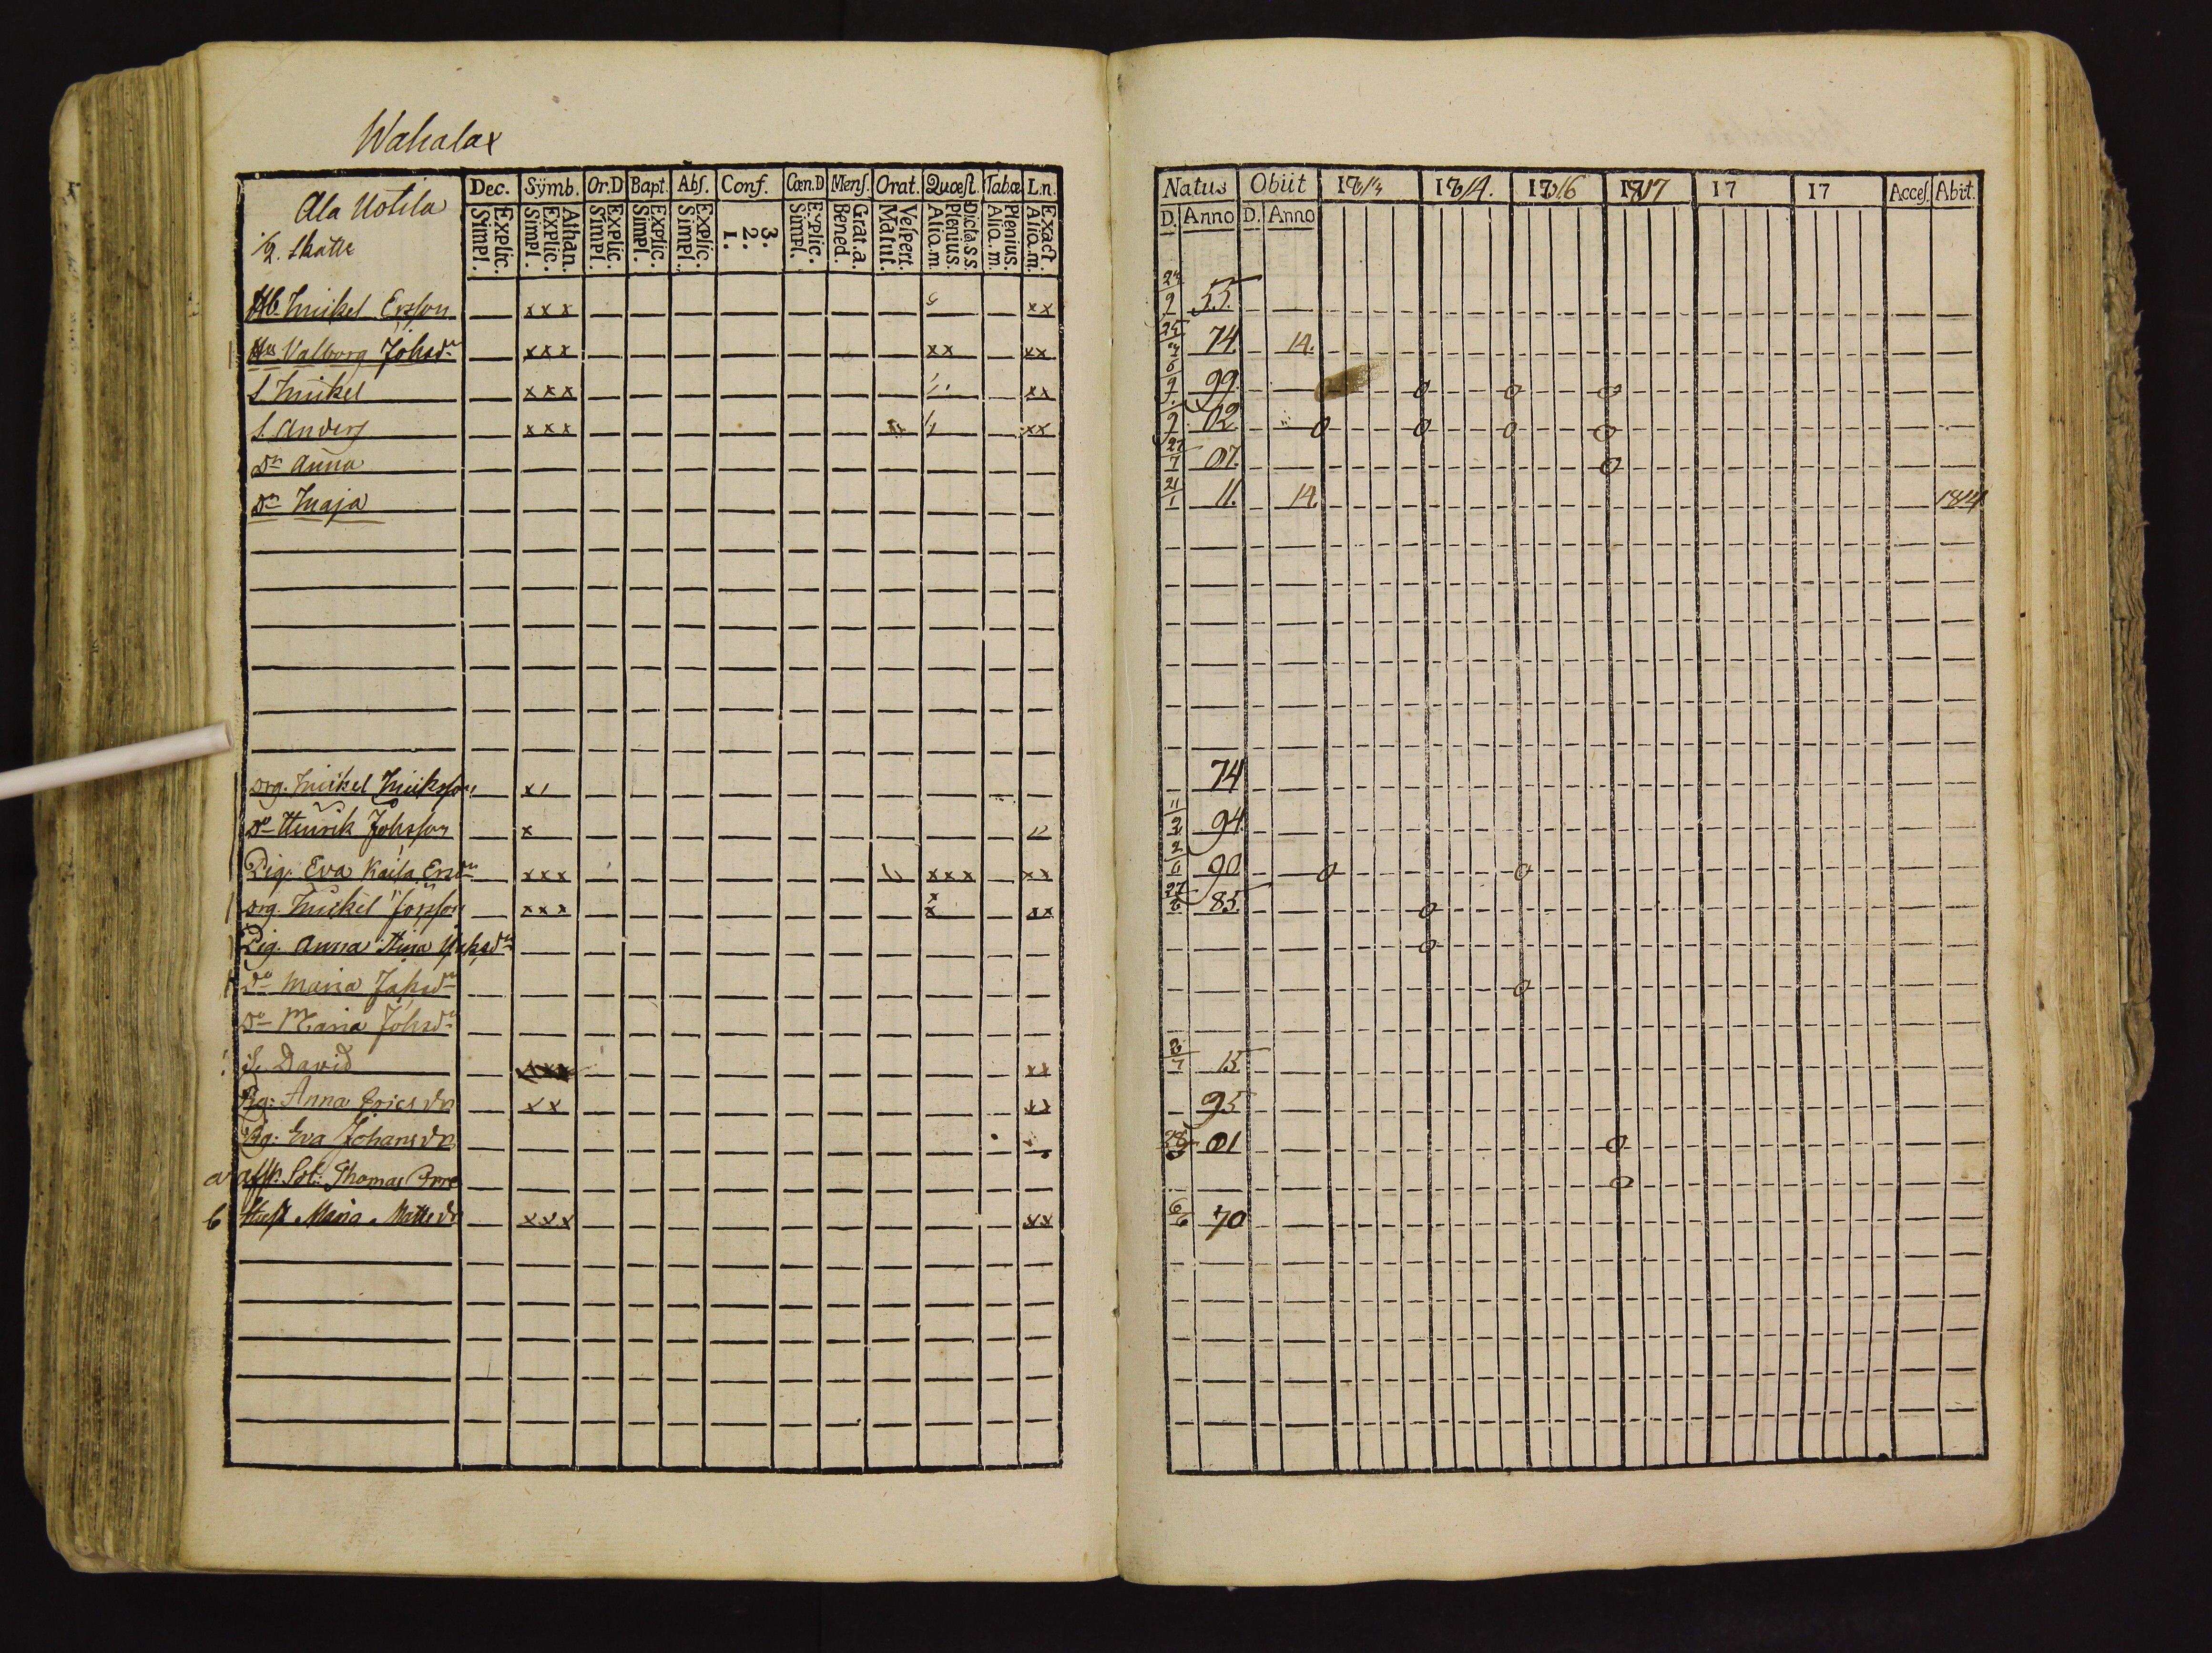 Wahalax
Ala Uotila
1/2 Skatte
Dec. Sÿmb. Or.D Bapt. Abſ. Conf. Cœn.D Menſ. Orat. Quœſt. Tabœ L.n.
Explic. Simpl. Athan. Explic. Simpl. Explic. Simpl. Explic. Simpl. Explic. Simpl. 3. 2. 1. Explic. Simpl. Grat.a. Bened. Veſpert. Matut. Dicta.s.s. Plenius. Alio.m. Plenius. Alio.m. Exact. Alio.m.
Natus Obiit 1813 1814. 1816 1817 17 17 Acceſ. Abiit.
D. Anno D. Anno
Hb. Mickel Ersson xxx xx 24/9 55.
Hu Valborg Johsdr xxx xx xx 74. 14.
S. Mickel xxx xx 6/9 99.
S. Anders xxx xx 02
Dr Anna 27/7 07.
Dr Maja 21/1 11. 14. 1814
Drg. Mickel Micksson x 74
Do Henrik Johsson x 11/2 94
Pig. Eva Kaisa Ersdr xxx xxx xx 90
Drg. Mickel xxx xx xx 27/6 85.
Pig. Anna Stina
Do Maria
Do Maria Johsdr
S. David xxx xx 2/7 15
Pig: Anna Ericsdr xx xx 95
Pig: Eva Johansdr 28 01
a Affsk. Sol: Thomas
b Hust. Maria Mattsdr xxx xx 6/6 70